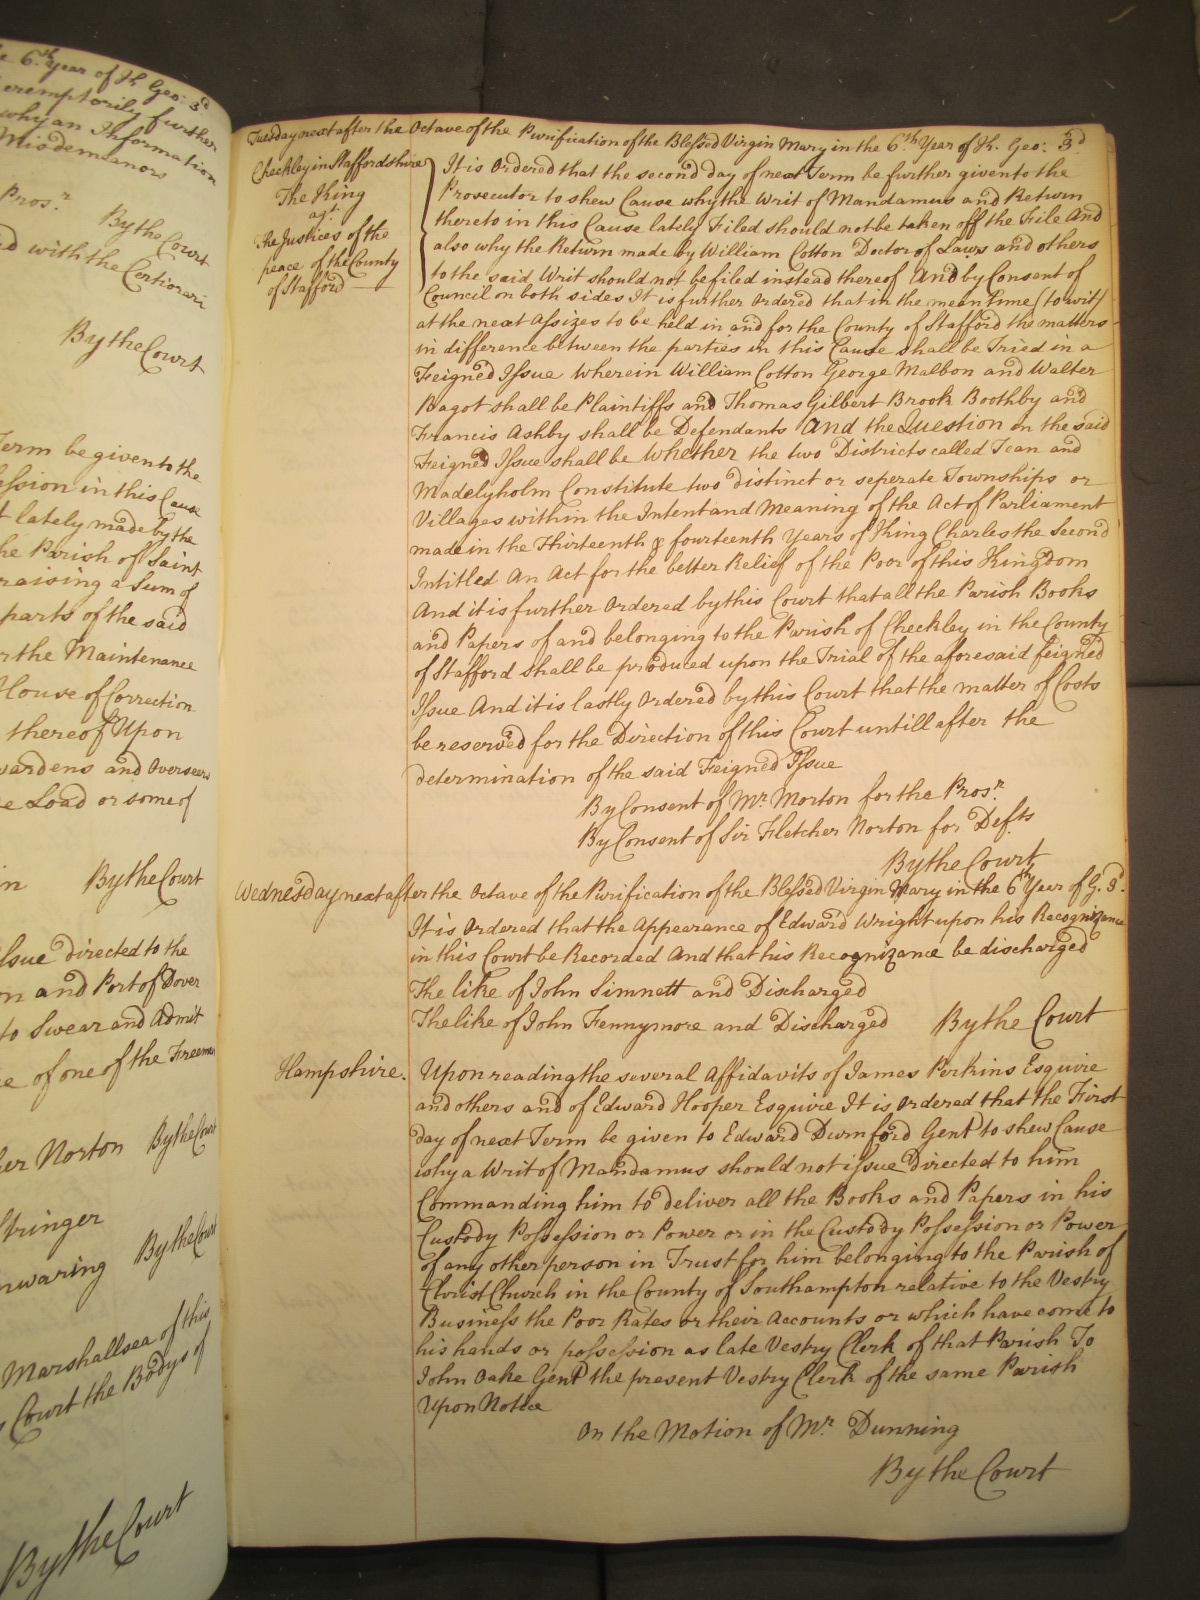 e 6.th Year of K. Geo: 3d
eremptorily further
why an Information
Misdemeanors
Pros.r By the Court
ed with the Certiorari
By the Court
Term be given to the
ession in this Cause
t lately made by the
he Parish of Saint
raising a Sum of
parts of the said
r the Maintenance
House of Correction
thereof Upon
wardens and Overseers
e Load or some of
in By the Court
Issue directed to the
on and Port of Dover
to Swear and Admit
ce of one of the Freemen
her Norton By the Court
Stringer
nwaring By the Court
Marshallsea of this
Court the Bodys of
By the Court
Tuesday next after the Octave of the Purification of the Blessed Virgin Mary in the 6.th Year of K. Geo: 3d
Checkley in Staffordshire
The King
agt.
The Justices of the
peace of the County
of Stafford
It is Ordered that the second day of next Term be further given to the
Prosecutor to shew Cause why the Writ of Mandamus and Return
thereto in this Cause lately Filed should not be taken off the File And
also why the Return made by William Cotton Doctor of Laws and others
to the said Writ should not be filed instead thereof And by Consent of
Council on both sides It is further Ordered that in the mean time (to wit)
at the next Assizes to be held in and for the County of Stafford the matters
in difference between the parties in this Cause shall be Tried in a
Feigned Issue Wherein William Cotton George Malbon and Walter
Bagot shall be Plaintiffs and Thomas Gilbert Brook Boothby and
Francis Ashby shall be Defendants And the Question on the said
Feigned Issue shall be Whether the two Districts called Tean and
Madelyholm Constitute two distinct or seperate Townships or
Villages within the Intent and Meaning of the Act of Parliament
made in the Thirteenth & fourteenth Years of King Charles the Second
Intitled An Act for the better Relief of the Poor of this Kingdom
And it is further Ordered by this Court that all the Parish Books
and Papers of and belonging to the Parish of Checkley in the County
of Stafford shall be produced upon the Trial of the aforesaid feigned
Issue And it is lastly Ordered by this Court that the matter of Costs
be reserved for the Direction of this Court untill after the
determination of the said Feigned Issue
By Consent of Mr. Morton for the Prosr.
By Consent of Sir Fletcher Norton for Defts
By the Court
Wednesday next after the Octave of the Purification of the Blessed Virgin Mary in the 6th Year of G. 3d.
It is Ordered that the Appearance of Edward Wright upon his Recognizance
in this Court be Recorded And that his Recognizance be discharged
The like of John Simnett and Discharged
The like of John Fennymore and Discharged By the Court
Hampshire. Upon reading the several Affidavits of James Perkins Esquire
and others and of Edward Hooper Esquire It is Ordered that the First
day of next Term be given to Edward Dumford Gent to shew Cause
why a Writ of Mandamus should not issue Directed to him
Commanding him to deliver all the Books and Papers in his
Custody Possession or Power or in the Custody Possession or Power
of any other person in Trust for him belonging to the Parish of
Christ Church in the County of Southampton relative to the Vestry
Business the Poor Rates or their Accounts or which have come to
his hands or possession as late Vestry Clerk of that Parish To
John Oake Gent the present Vestry Clerk of the same Parish
Upon Notice
On the Motion of Mr. Dunning
By the Court